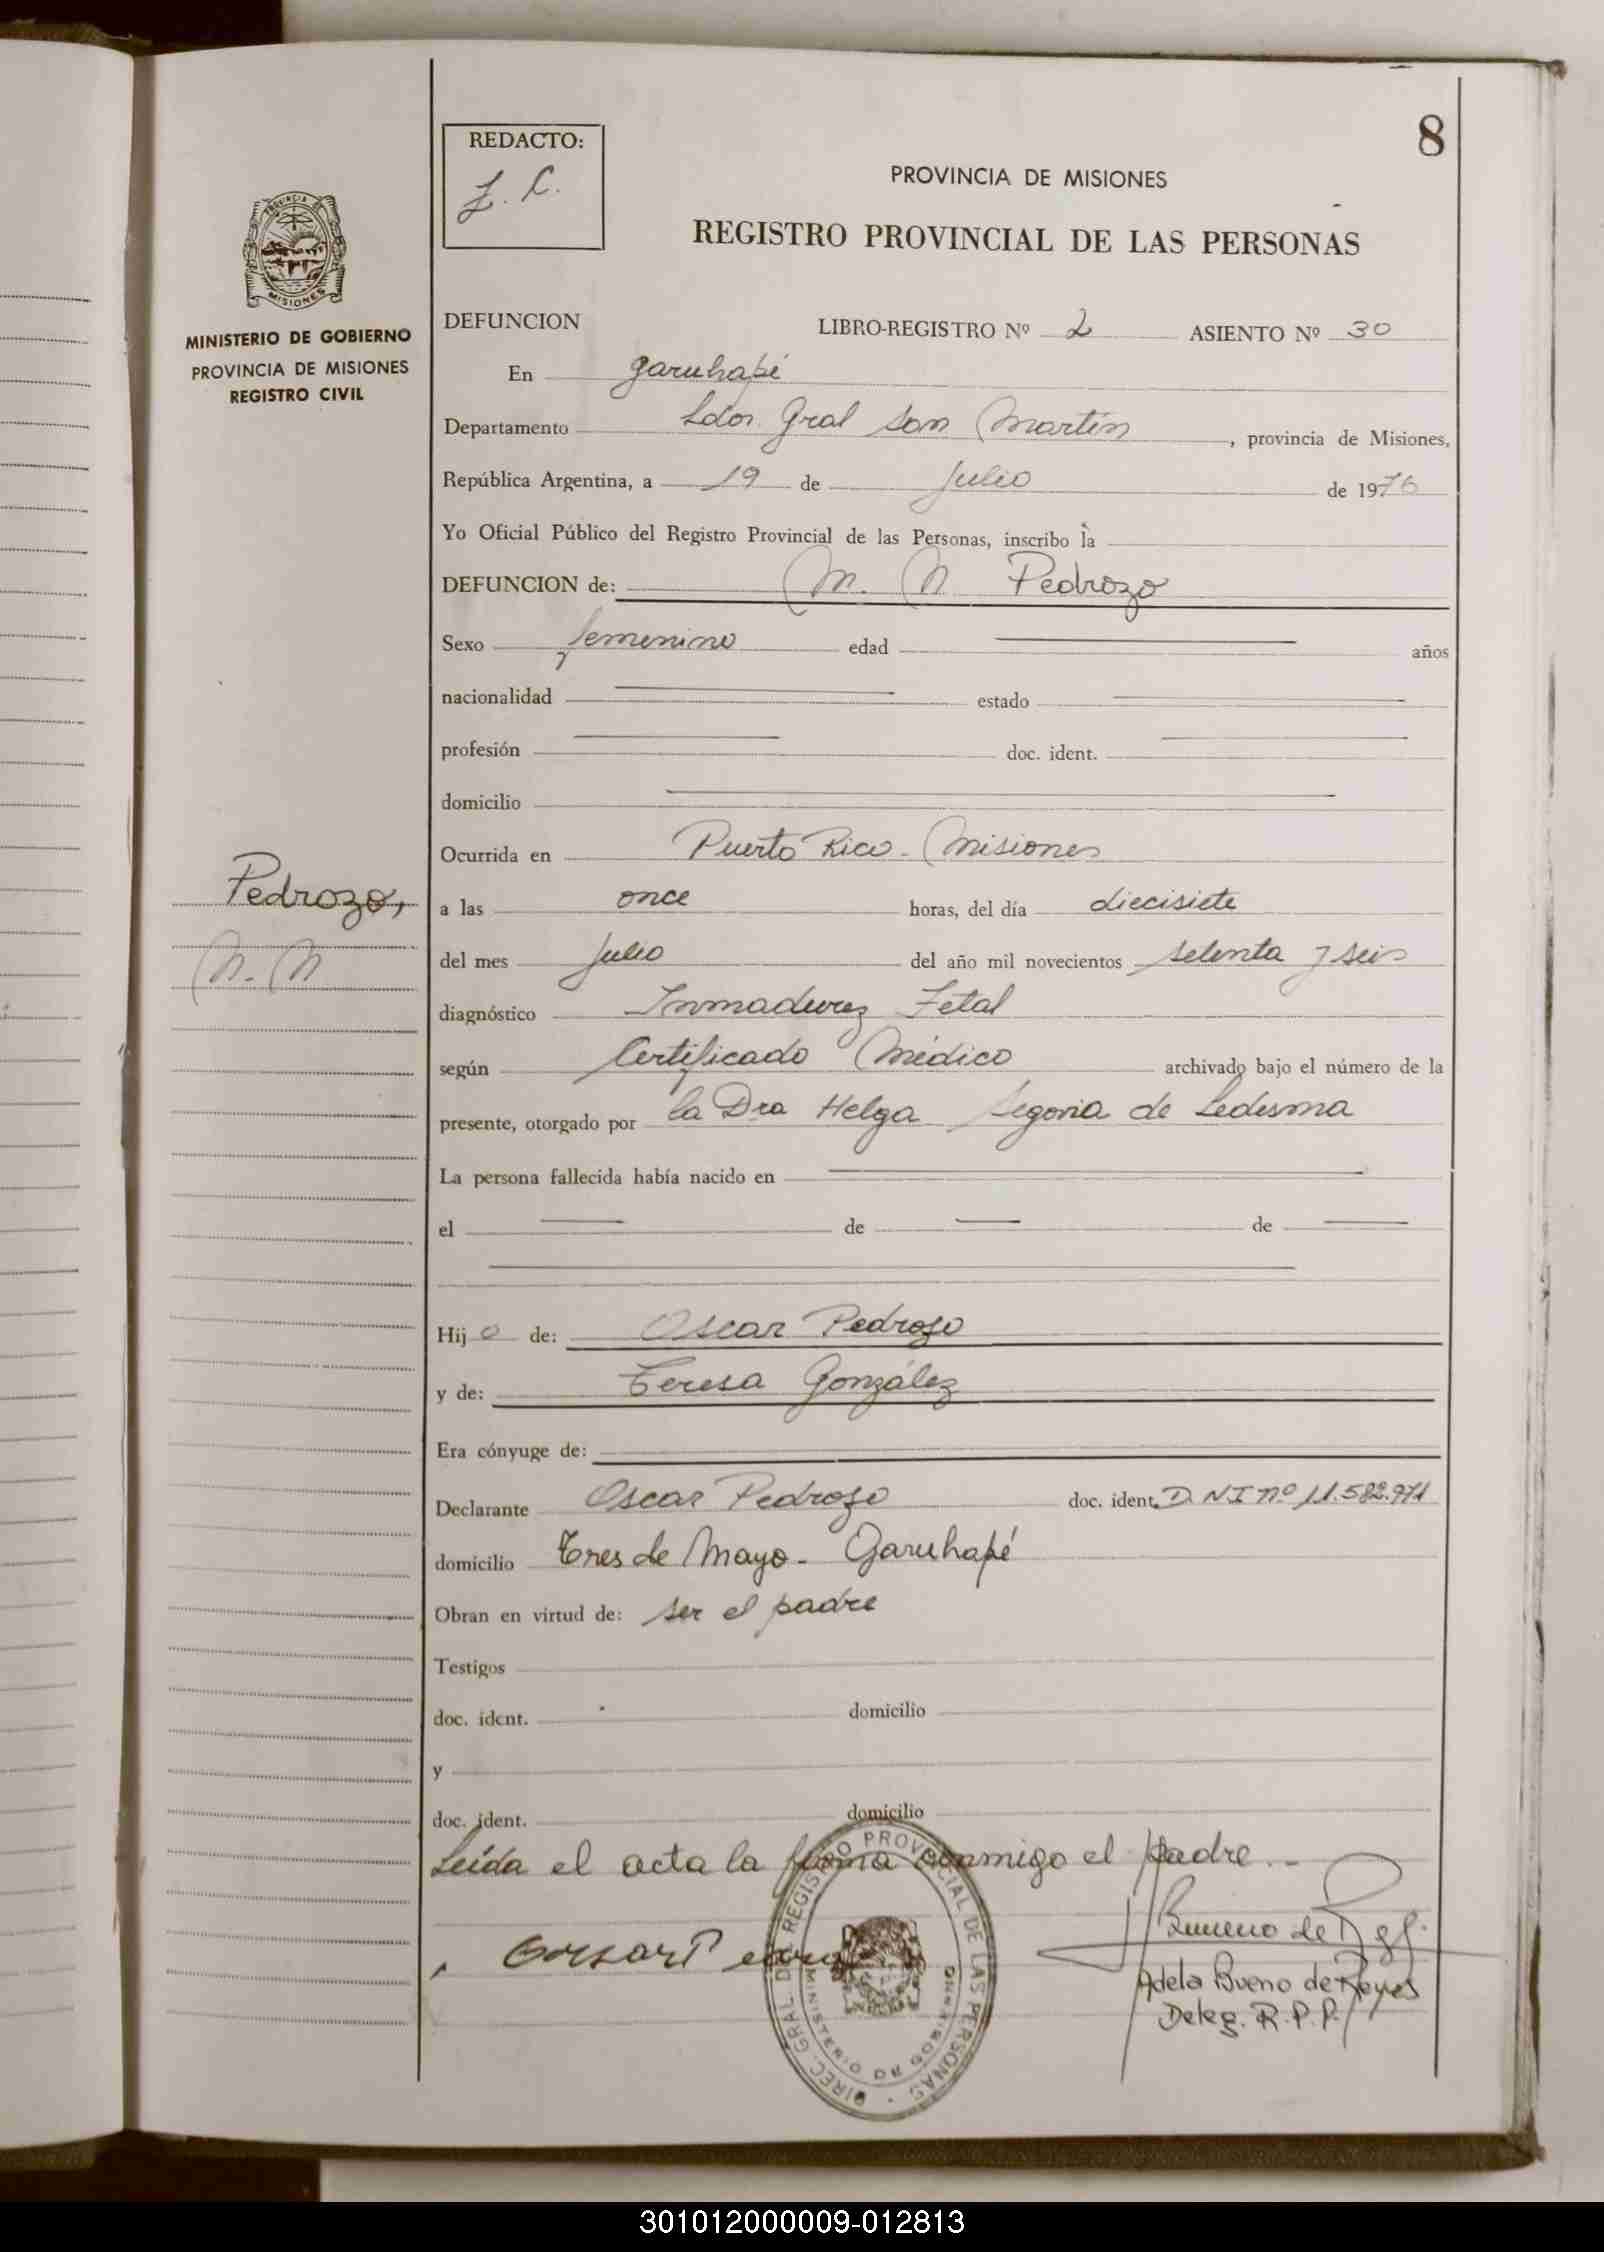 8
REDACTO:
PROVINCIA DE MISIONES
REGISTRO PROVINCIAL DE LAS PERSONAS
MINISTERIO DE GOBIERNO
PROVINCIA DE MISIONES
REGISTRO CIVIL
DEFUNCION LIBRO-REGISTRO Nº 2 ASIENTO Nº 30
En Garuhapé
Departamento Ldor. Gral San Martín, provincia de Misiones,
República Argentina, a 19 de Julio de 1976
Yo Oficial Público del Registro Provincial de las Personas, inscribo la
DEFUNCION de: N. N Pedrozo
Sexo femenino edad años
nacionalidad estado
profesión doc. ident.
domicilio
Ocurrida en Puerto Rico - Misiones
Pedrozo,
N. N
a las once horas, del día diecisiete
del mes Julio del año mil novecientos setenta y seis
diagnóstico Inmadurez Fetal
según Certificado Médico archivado bajo el número de la
presente, otorgado por la Dra Helga Segovia de Ledesma
La persona fallecida había nacido en
el de de
Hijo de: Oscar Pedrozo
y de: Teresa González
Era cónyuge de:
Declarante Oscar Pedrozo doc. ident. D.N.I nº 11.582.971
domicilio Tres de Mayo - Garuhapé
Obran en virtud de: ser el padre
Testigos
doc. ident. domicilio
y
doc. ident. domicilio
Leída el acta la firma conmigo el padre.-
DIREC. GRAL. DEL REGISTRO PROVINCIAL DE LAS PERSONAS
MINISTERIO DE GOBIERNO
Adela Bueno de Reyes
Deleg. R.P.P.
301012000009-012813